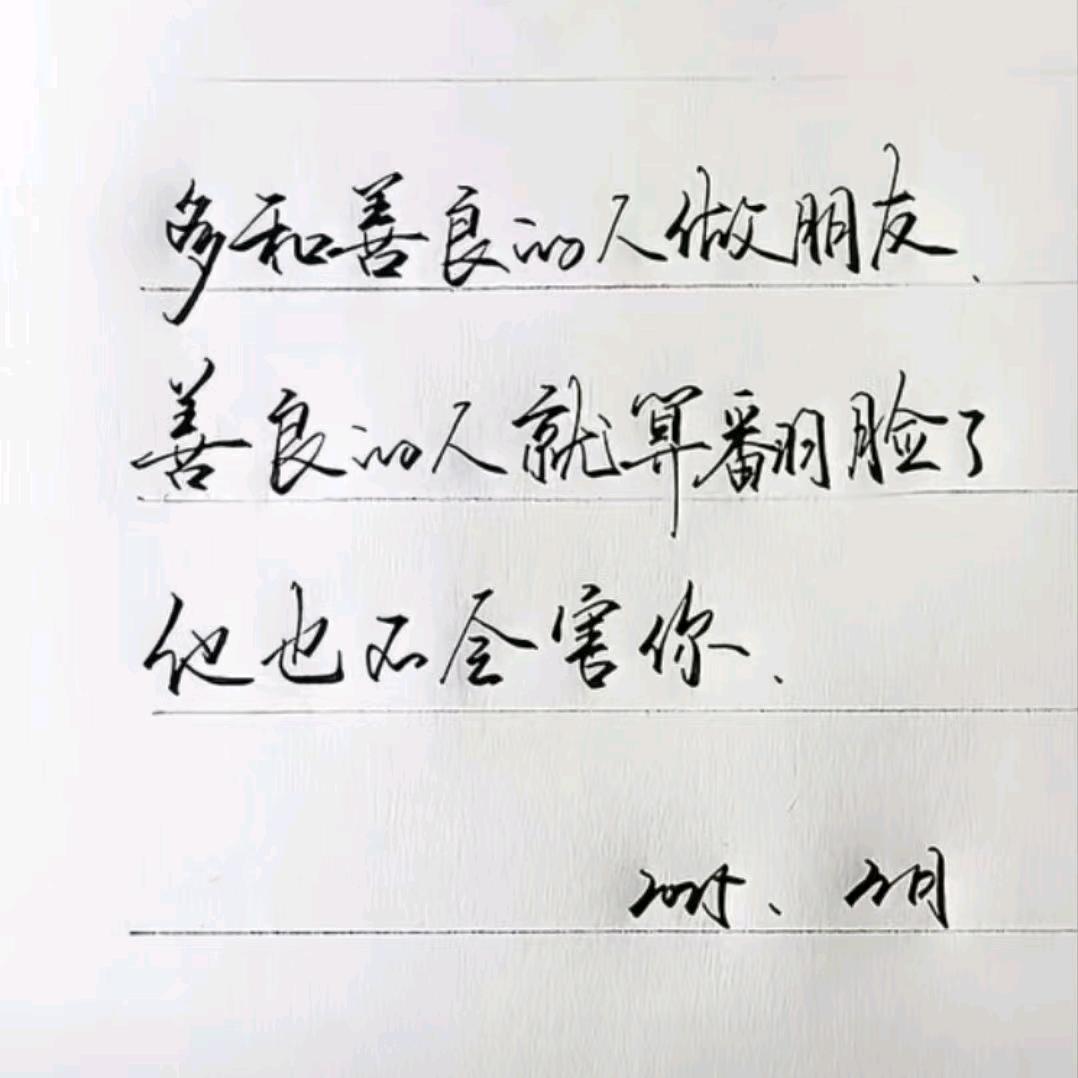 多和善良的人做朋友、
善良的人就算翻脸了
他也不会害你、
月